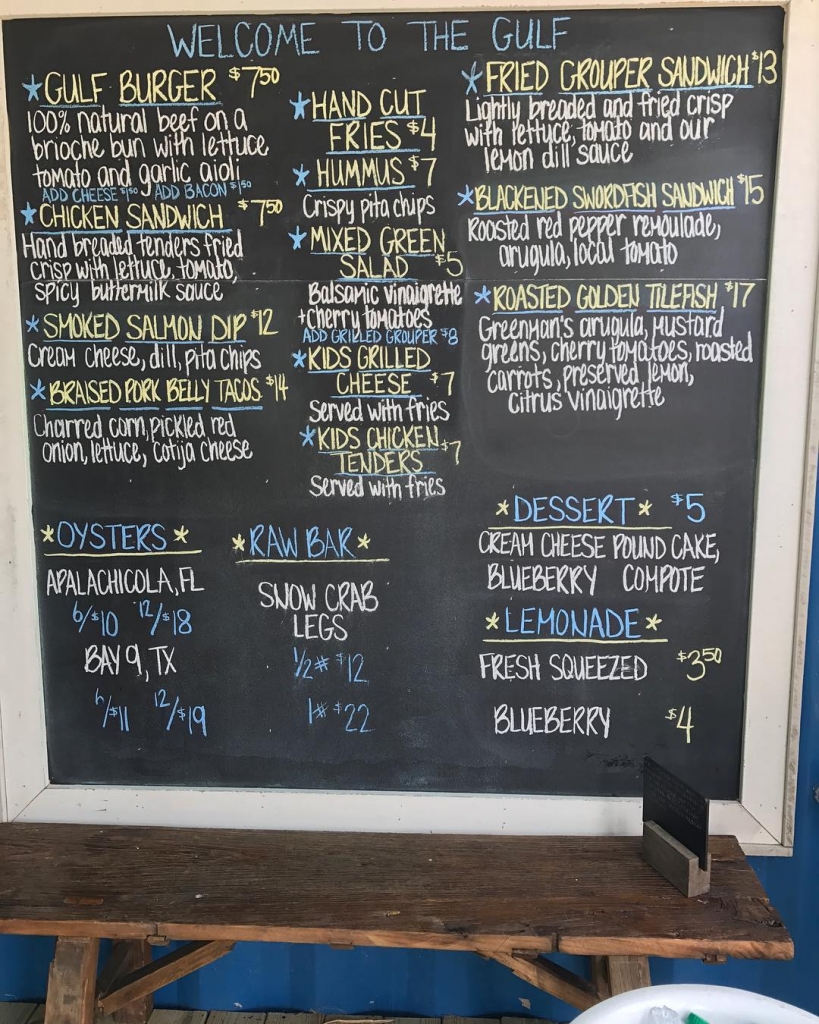 WELCOME TO THE GULF
*GULF BURGER $7.50
100% natural beef on a
brioche bun with lettuce
tomato and garlic aioli
ADD CHEESE $1.50 ADD BACON $1.50
*CHICKEN SANDWICH $7.50
Hand breaded tenders fried
crisp with lettuce, tomato,
spicy buttermilk sauce
*SMOKED SALMON DIP $12
Cream cheese, dill, pita chips
*BRAISED PORK BELLY TACOS $14
Charred corn, pickled red
onion, lettuce, cotija cheese
*HAND CUT
FRIES $4
*HUMMUS $7
Crispy pita chips
*MIXED GREEN
SALAD $5
Balsamic vinaigrette
+cherry tomatoes
ADD GRILLED GROUPER $8
*KIDS GRILLED
CHEESE $7
Served with fries
*KIDS CHICKEN
TENDERS $7
Served with fries
*FRIED GROUPER SANDWICH $13
Lightly breaded and fried crisp
with lettuce, tomato and our
lemon dill sauce
*BLACKENED SWORDFISH SANDWICH $15
Roasted red pepper remoulade,
arugula, local tomato
*ROASTED GOLDEN TILEFISH $17
Greenman's arugula, mustard
greens, cherry tomatoes, roasted
carrots, preserved lemon,
citrus vinaigrette
*OYSTERS*
APALACHICOLA, FL
6/$10 12/$18
BAY 9, TX
6/$11 12/$19
*RAW BAR*
SNOW CRAB
LEGS
1/2# $12
1# $22
*DESSERT* $5
CREAM CHEESE POUND CAKE,
BLUEBERRY COMPOTE
*LEMONADE*
FRESH SQUEEZED $3.50
BLUEBERRY $4